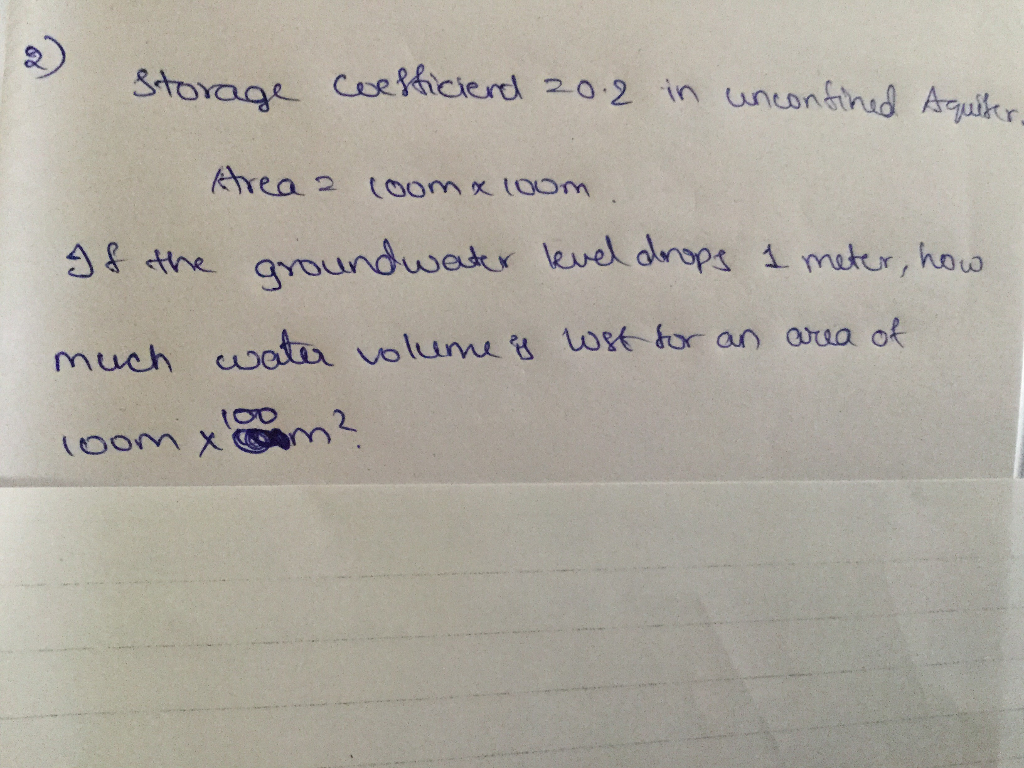 2)
Storage Coefficient = 0.2 in unconfined Aquifer.
Area = 100m x 100m.
If the groundwater level drops 1 meter, how
much water volume is lost for an area of
100m x 100 m?